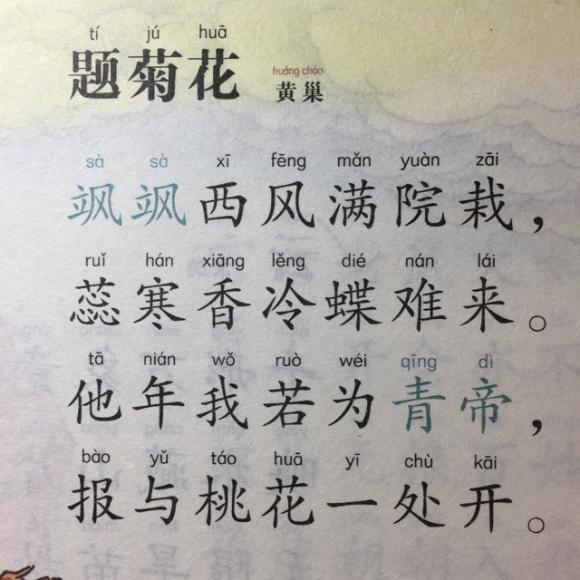 tí jú huā
题菊花
huáng cháo
黄巢
sà sà xī fēng mǎn yuàn zāi
飒飒西风满院栽，
ruǐ hán xiāng lěng dié nán lái
蕊寒香冷蝶难来。
tā nián wǒ ruò wéi qīng dì
他年我若为青帝，
bào yǔ táo huā yī chù kāi
报与桃花一处开。